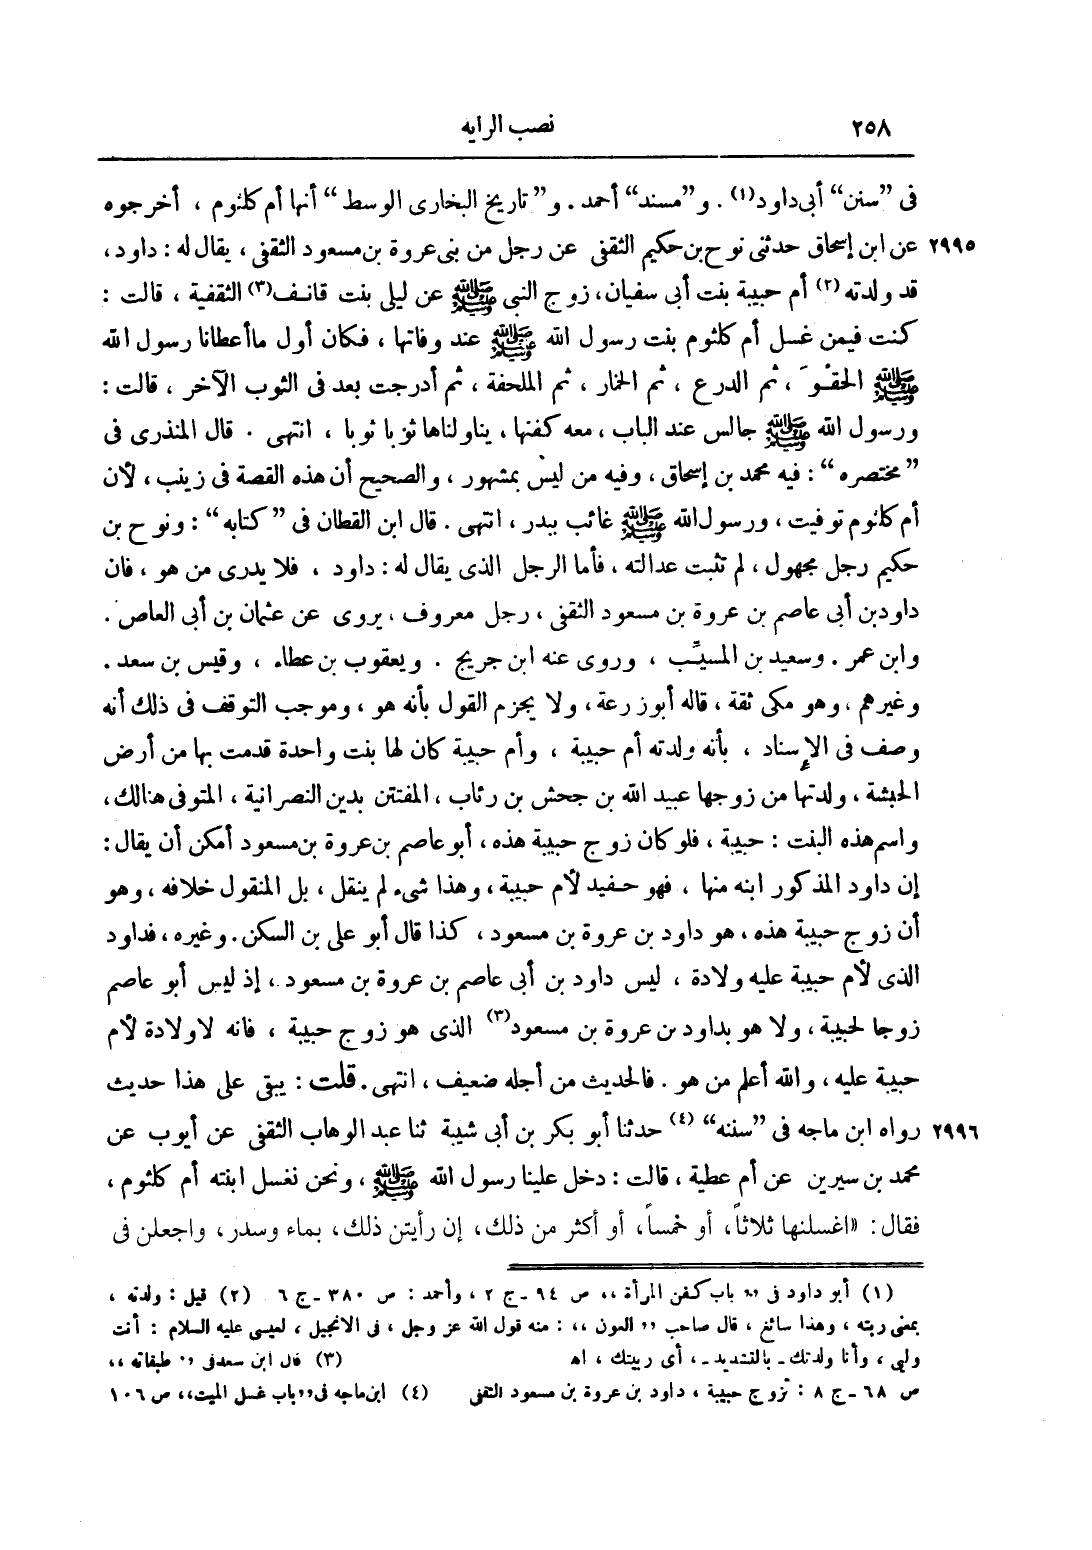 ٢٥٨ نصب الرايه
فى ”سنن“ أبى داود(١) . و”مسند“ أحمد . و”تاريخ البخارى الوسط“ أنها أم كلثوم ، أخرجوه
٢٩٩٥ عن ابن إسحاق حدثنى نوح بن حكيم الثقفى عن رجل من بنى عروة بن مسعود الثقفى ، يقال له : داود ،
قد ولدته (٢) أم حبيبة بنت أبى سفيان، زوج النبى ﷺ عن ليلى بنت قانف(٣) الثقفية ، قالت :
كنت فيمن غسل أم كلثوم بنت رسول الله ﷺ عند وفاتها ، فكان أول ما أعطانا رسول الله
ﷺ الحقْوَ ، ثم الدرع ، ثم الخمار ، ثم الملحفة ، ثم أدرجت بعد فى الثوب الآخر ، قالت :
ورسول الله ﷺ جالس عند الباب ، معه كفنها ، يناولناها ثوبا ثوبا ، انتهى . قال المنذرى فى
”مختصره“ : فيه محمد بن إسحاق ، وفيه من ليس بمشهور ، والصحيح أن هذه القصة فى زينب ، لأن
أم كلثوم توفيت ، ورسول الله ﷺ غائب ببدر ، انتهى . قال ابن القطان فى ”كتابه“ : ونوح بن
حكيم رجل مجهول ، لم تثبت عدالته ، فأما الرجل الذى يقال له : داود ، فلا يدرى من هو ، فان
داود بن أبى عاصم بن عروة بن مسعود الثقفى ، رجل معروف ، يروى عن عثمان بن أبى العاص .
وابن عمر . وسعيد بن المسيِّب ، وروى عنه ابن جريج . ويعقوب بن عطاء ، وقيس بن سعد .
وغيرهم ، وهو مكى ثقة ، قاله أبو زرعة ، ولا يجزم القول بأنه هو ، وموجب التوقف فى ذلك أنه
وصف فى الإسناد ، بأنه ولدته أم حبيبة ، وأم حبيبة كان لها بنت واحدة قدمت بها من أرض
الحبشة ، ولدتها من زوجها عبيد الله بن جحش بن رئاب ، المفتتن بدين النصرانية ، المتوفى هنالك ،
واسم هذه البنت : حبيبة ، فلو كان زوج حبيبة هذه ، أبو عاصم بن عروة بن مسعود أمكن أن يقال :
إن داود المذكور ابنه منها ، فهو حفيد لأم حبيبة ، وهذا شىء لم ينقل ، بل المنقول خلافه ، وهو
أن زوج حبيبة هذه ، هو داود بن عروة بن مسعود ، كذا قال أبو على بن السكن . وغيره ، فداود
الذى لأم حبيبة عليه ولادة ، ليس داود بن أبى عاصم بن عروة بن مسعود ، إذ ليس أبو عاصم
زوجا لحبيبة ، ولا هو بداود بن عروة بن مسعود(٣) الذى هو زوج حبيبة ، فانه لا ولادة لأم
حبيبة عليه ، والله أعلم من هو . فالحديث من أجله ضعيف ، انتهى . قلت : يبقى على هذا حديث
٢٩٩٦ رواه ابن ماجه فى ”سننه“ (٤) حدثنا أبو بكر بن أبى شيبة ثنا عبد الوهاب الثقفى عن أيوب عن
محمد بن سيرين عن أم عطية ، قالت : دخل علينا رسول الله ﷺ ، ونحن نغسل ابنته أم كلثوم ،
فقال : «اغسلنها ثلاثاً، أو خمساً، أو أكثر من ذلك، إن رأيتن ذلك، بماء وسدر، واجعلن فى
(١) أبو داود فى ,, باب كفن المرأة ,, ص ٩٤ ـ ج ٢ ، وأحمد : ص ٣٨٠ ـ ج ٦ (٢) قيل : ولدته ،
بمعنى ربته ، وهذا سائغ ، قال صاحب ,, العون ,, : منه قول الله عز وجل ، فى الانجيل ، لعيسى عليه السلام : أنت
وليى ، وأنا ولدتك ـ بالتشديد ـ ، أى ربيتك ، اه (٣) قال ابن سعد فى ,, طبقاته ,,
ص ٦٨ ـ ج ٨ : تزوج حبيبة ، داود بن عروة بن مسعود الثقفى (٤) ابن ماجه فى ,, باب غسل الميت ,, ص ١٠٦